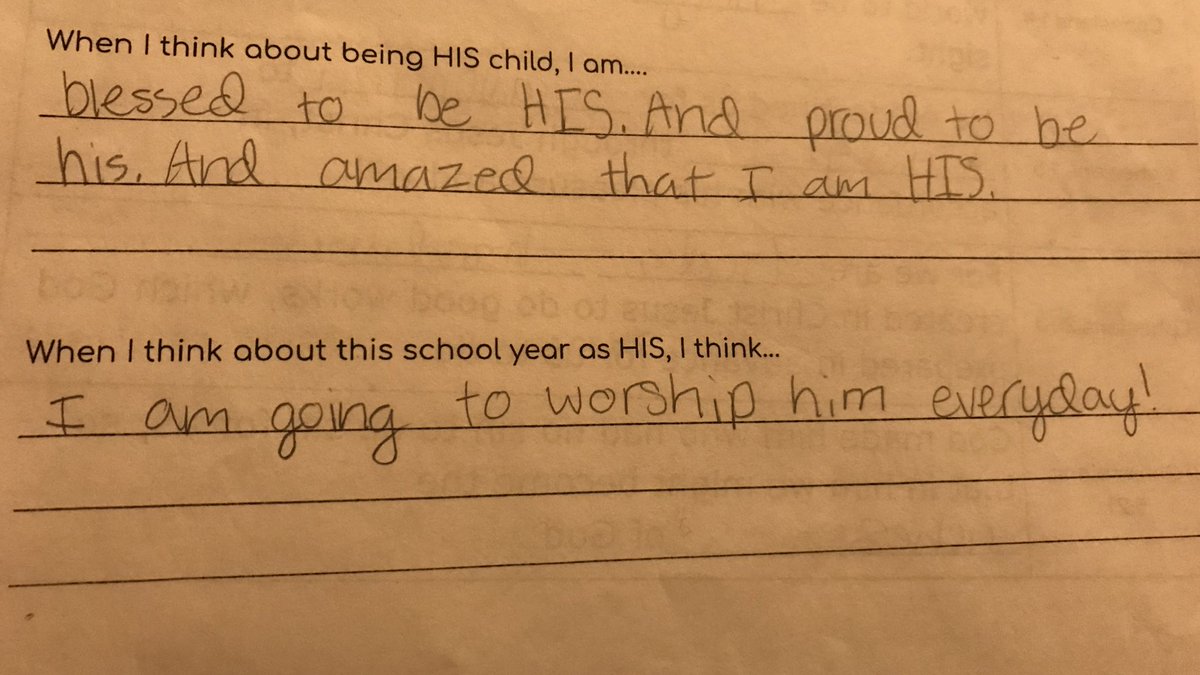 When I think about being HIS child, I am....
blessed to be HIS. And proud to be
his. And amazed that I am HIS.
When I think about this school year as HIS, I think...
I am going to worship him everyday!